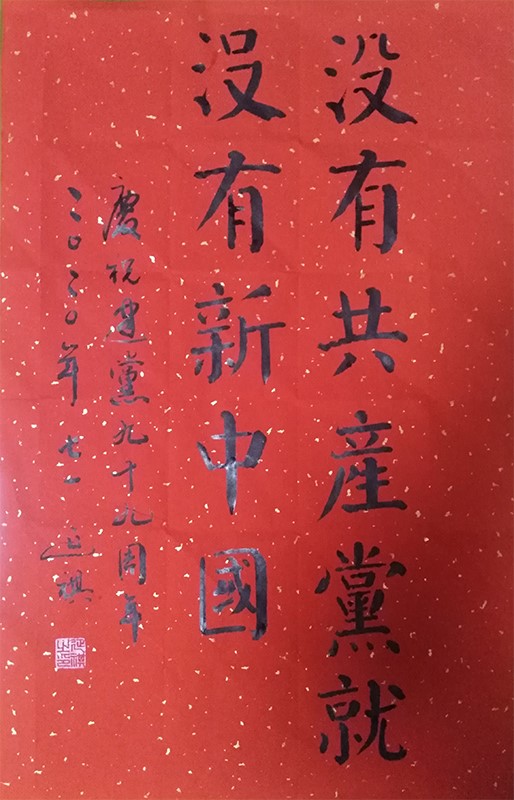 没有共產黨就
沒有新中國
慶祝建黨九十九周年
二〇二〇年七一